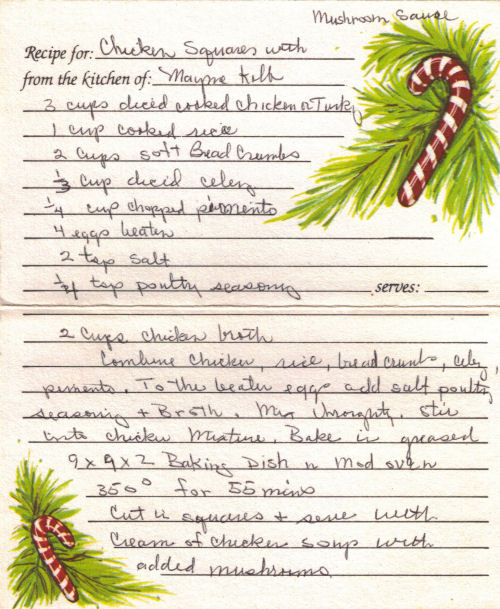 Mushroom Sauce
Recipe for: Chicken Squares with
from the kitchen of: Mayme
3 cups diced cooked chicken or Turkey
1 cup cooked rice
2 Cups soft Bread Crumbs
1/3 Cup diced celery
1/4 cup chopped pimento
4 eggs beaten
2 tsp salt
1/4 tsp poultry seasoning
serves:
2 Cups chicken broth
Combine chicken, rice, bread crumbs, celery,
pimento. To the beaten eggs add salt poultry
seasoning + Broth. Mix thoroughly. Stir
into chicken mixture. Bake in greased
9 x 9 x 2 Baking Dish in mod oven
350° for 55 mins
Cut in squares + serve with
Cream of chicken soup with
added mushrooms.